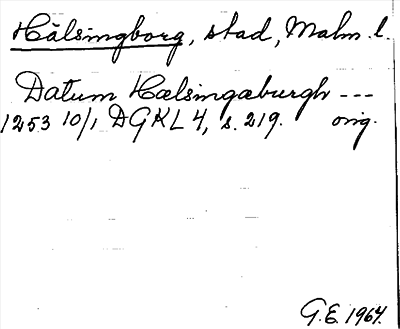 Hälsingborg, stad, Malm. l.
Datum Hælsingaburgh ---
1253 10/1 DGKL 4, s. 219. orig.
G.E. 1964.